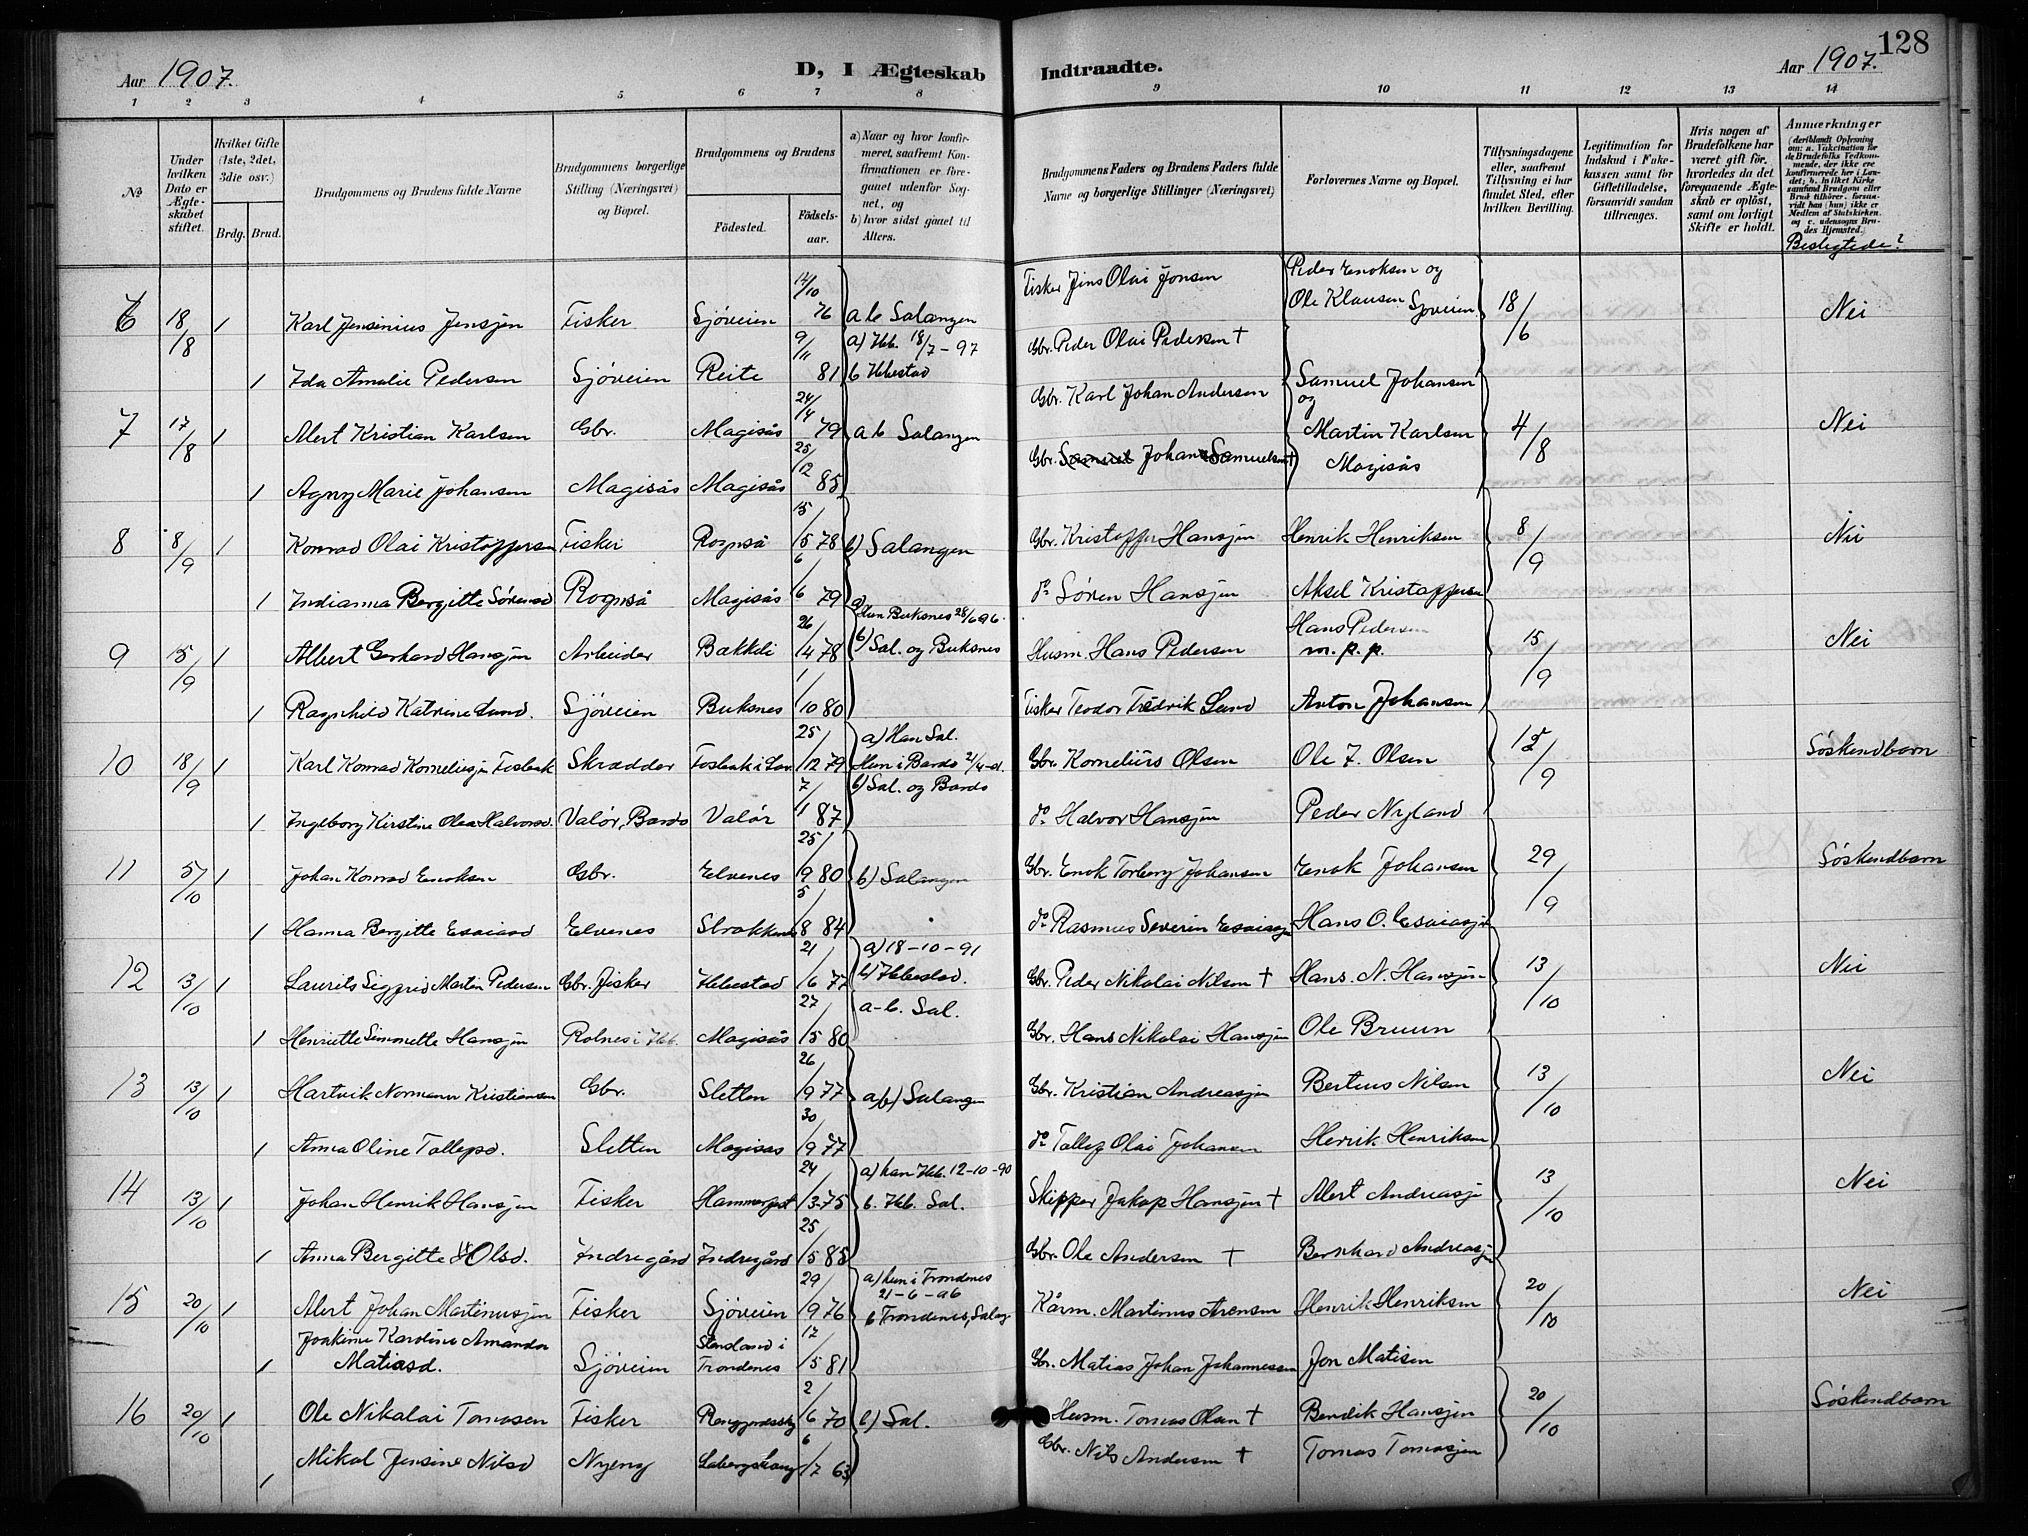 128
Aar 1907.
D, I Ægteskab Indtraadte.
Aar 1907.
1 2 3 4 5 6 7 8 9 10 11 12 13 14
№
Under hvilken Dato er Ægteskabet stiftet.
Hvilket Gifte (1ste, 2det, 3die osv.)
Brdg. Brud.
Brudgommens og Brudens fulde Navne
Brudgommens borgerlige Stilling (Næringsvei) og Bopæl.
Brudgommens og Brudens
Fødested.
Fødselsaar.
a) Naar og hvor konfirmeret, saafremt Konfirmationen er foregaaet udenfor Sognet, og
b) hvor sidst gaaet til Alters.
Brudgommens Faders og Brudens Faders fulde Navne og borgerlige Stillinger (Næringsvei)
Forlovernes Navne og Bopæl.
Tillysningsdagene eller, saafremt Tillysning ei har fundet Sted, efter hvilken Bevilling.
Legitimation for Indskud i Enkekassen samt for Giftetilladelse, forsaavidt saadan tiltrænges.
Hvis nogen af Brudefolkene har været gift før, hvorledes da det foregaaende Ægteskab er opløst, samt om lovligt Skifte er holdt.
Anmærkninger (deriblandt Oplysning om: a. Vakcination for de Brudefolks Vedkommende, der ikke ere konfirmerede her i Landet; b. hvilket Kirkesamfund Brudgom eller Brud tilhører, forsaavidt han (hun) ikke er Medlem af Statskirken, og c. udensogns Brudes Hjemsted.)
Beslegtede?
6 18/8 1 Karl Jensenius Jensjen Fisker Sjøveien 12/10 76 a b Salangen Fisker Jens Olai Jonsen Peder Enoksen og Ole Klausen Sjøveien 18/6 Nei
1 Ida Amalie Pedersen Sjøveien Reite 9/11 81 a) Ibb. 18/7-97 b Ibbestad Gbr. Peder Olai Pedersen †
7 17/8 1 Alert Kristian Karlsen Gbr. Magisås 24/4 79 a b Salangen Gbr. Karl Johan Andersen Samuel Johansen og Martin Karlsen Magisås 4/8 Nei
1 Agny Marie Johansen Magisås Magisås 25/12 85 Gbr. Johan Samuelsen †
8 8/9 1 Konrad Olai Kristoffersen Fisker Rognså 15/5 78 b) Salangen Gbr. Kristoffer Hansjen Henrik Henriksen 8/9 Nei
1 Indianna Bergitte Sørensd Rognså Magisås 6/6 79 do Søren Hansjen Aksel Kristoffersen
9 15/9 1 Albert Gerhard Hansjen Arbeider Bakkeli 26/4 78 a) Hun Buksnes 28/6 96. b) Sal. og Buksnes Husm. Hans Pedersen Hans Pedersen m. p. p. 15/9 Nei
1 Ragnhild Katrine Lund. Sjøveien Buksnes 1/10 80 Fisker Teodor Fredrik Lund Anton Johansen
10 18/9 1 Karl Konrad Korneliusjen Fosbak Skrædder Fosbak i Lav. 25/12 79 a) Han Sal. Hun i Bardo 2/4-d. b) Sal. og Bardo Gbr. Kornelius Olsen Ole J. Olsen 15/9 Søskendbarn
1 Ingeborg Kirstine Olea Halvorsd. Valør, Bardo Valør 7/11 87 do Halvor Hansjen Peder Nyland
11 5/10 1 Johan Konrad Enoksen Gbr. Elvenes 25/9 80 b) Salangen Gbr. Enok Torberg Johansen Enok Johansen 29/9 Søskendbarn
1 Hanna Bergitte Esaiasd Elvenes 5/8 84 do Rasmus Severin Esaiasjen Hans O. Esaiasjen
12 13/10 1 Laurits Sigfrid Martin Pedersen Gbr. Fisker Ibbestad 21/6 77 a) 18-10-91 b) Ibbestad. Gbr. Peder Nikolai Nilsen † Hans. N. Hansjen 13/10 Nei
1 Henriette Simonette Hansjen Rolnes i Ibb. Magisås 27/5 80 a-b. Sal. Gbr. Hans Nikolai Hansjen Ole Bruun
13 13/10 1 Hartvik Normann Kristiansen Gbr. Sletten 26/9 77 a, b) Salangen Gbr. Kristian Andreasjen Berteus Nilsen 13/10 Nei
1 Anna Oline Tollefsd. Sletten Magisås 30/9 77 do Tollef Olai Johansen Henrik Henriksen
14 13/10 1 Johan Henrik Hansjen Fisker Hammerfest 24/3 75 a) han Ibb. 12-10-90 b. Ibb. Sal. Skipper Jakop Hansjen † Alert Andreasjen 13/10 Nei
1 Anna Bergitte Olsd. Indregård Indregård 25/5 85 Gbr. Ole Andersen † Bernhard Andreasjen
15 20/10 1 Alert Johan Martinusjen Fisker Sjøveien 29/9 76 a) hun i Trondenes 21-6-96 b Trondenes, Salag Kårm. Martinus Arensen Henrik Henriksen 20/10 Nei
1 Joakime Karoline Amanda Matiasd. Sjøveien Stenland i Trondenes 17/5 81 Gbr. Matias Johan Johannessen Jon Matisen
16 20/10 1 Ole Nikolai Tomasen Fisker 2/6 70 b) Sal. Husm. Tomas Olsen † Bendik Hansjen 20/10 Søskendbarn
1 Mikal Jensine Nilsd Nyeng 6/7 63 Gbr. Nils Andersen † Tomas Tomasjen